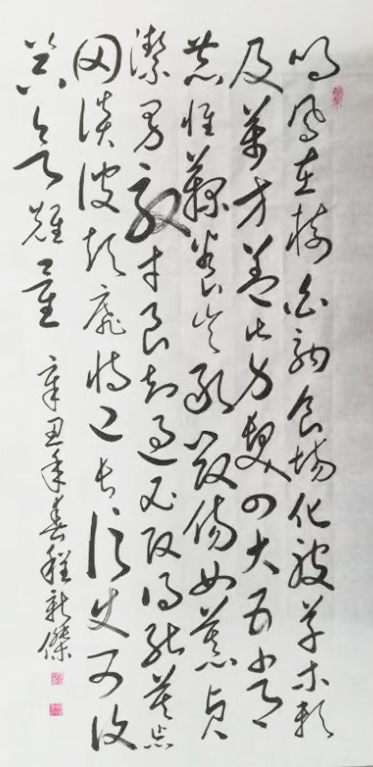 鳴鳳在樹白駒食場化被草木賴
及萬方蓋此身髮四大五常
恭惟鞠養豈敢毀傷女慕貞
潔男效才良知過必改得能莫忘
罔談彼短靡恃己長信使可復
器欲難量 辛丑年春程新傑